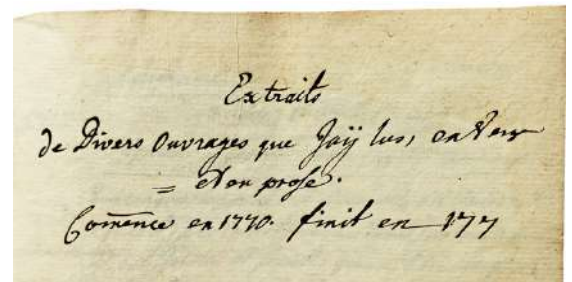 Extraits
de Divers Ouvrages que Jaÿ lus, en Vers
= et en prose.
Com̄ence en 1770. finit en 177